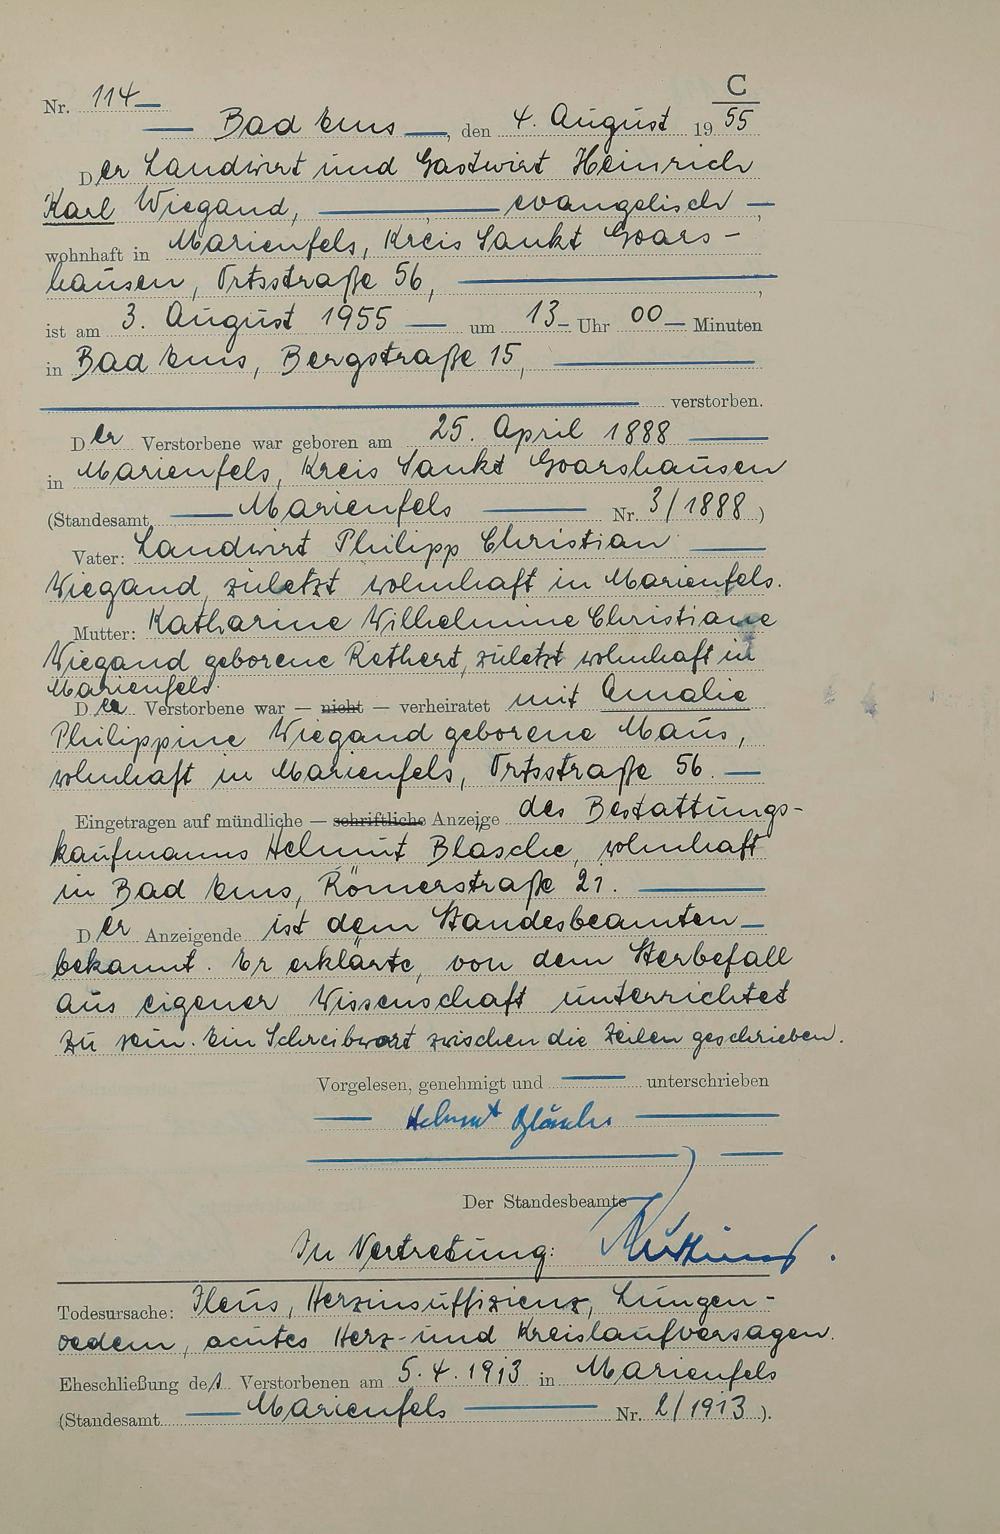 C
Nr. 114
Bad Ems, den 4. August 1955
Der Landwirt und Gastwirt Heinrich
Karl Wiegand, evangelisch
wohnhaft in Marienfels, Kreis Sankt Goars-
hausen, Ortsstraße 56,
ist am 3. August 1955 um 13 Uhr 00 Minuten
in Bad Ems, Bergstraße 15,
verstorben.
Der Verstorbene war geboren am 25. April 1888
in Marienfels, Kreis Sankt Goarshausen
(Standesamt Marienfels Nr. 3/1888)
Vater: Landwirt Philipp Christian
Wiegand, zuletzt wohnhaft in Marienfels.
Mutter: Katharine Wilhelmine Christiane
Wiegand geborene Rethert, zuletzt wohnhaft in
Marienfels.
Der Verstorbene war — nicht — verheiratet mit Amalie
Philippine Wiegand geborene Maus,
wohnhaft in Marienfels, Ortsstraße 56.
Eingetragen auf mündliche — schriftliche Anzeige des Bestattungs-
kaufmanns Helmut Bläsche, wohnhaft
in Bad Ems, Römerstraße 21.
Der Anzeigende ist dem Standesbeamten
bekannt. Er erklärte, von dem Sterbefall
aus eigener Wissenschaft unterrichtet
zu sein. Ein Schreibwort zwischen die Zeilen geschrieben.
Vorgelesen, genehmigt und unterschrieben
Helmut Bläsche
Der Standesbeamte
In Vertretung:
Todesursache: Ileus, Herzinsuffizienz, Lungen-
oedem, acutes Herz- und Kreislaufversagen.
Eheschließung des Verstorbenen am 5.4.1913 in Marienfels
(Standesamt Marienfels Nr. 2/1913).